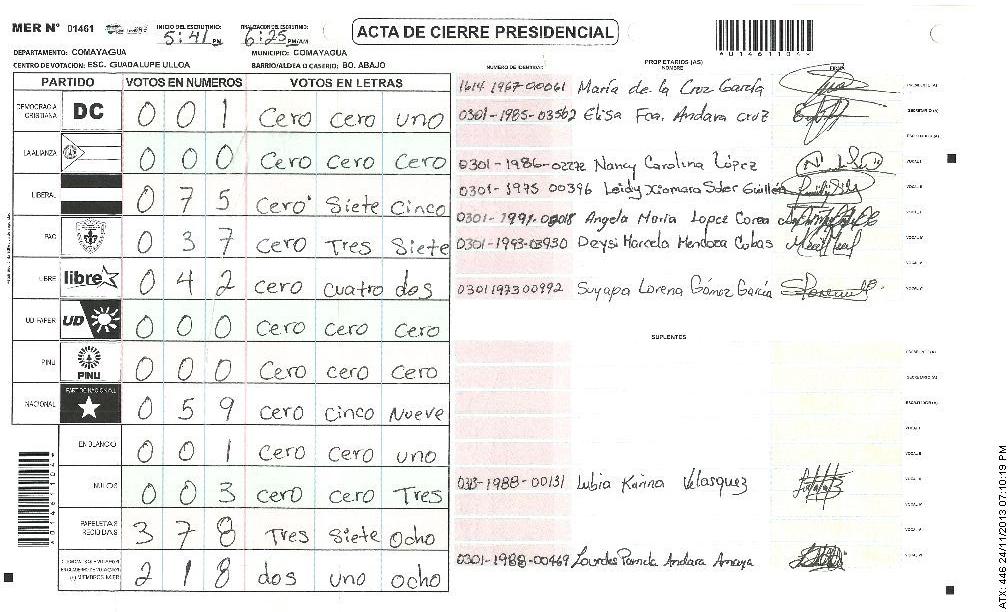 MER Nº 01461 INICIO DEL ESCRUTINIO: 5:41 PM 6:25 PM/AM ACTA DE CIERRE PRESIDENCIAL
DEPARTAMENTO: COMAYAGUA MUNICIPIO: COMAYAGUA
CENTRO DE VOTACION: ESC. GUADALUPE ULLOA BARRIO/ALDEA O CASERIO: BO. ABAJO
PARTIDO VOTOS EN NUMEROS VOTOS EN LETRAS
DEMOCRACIA CRISTIANA DC 0 0 1 Cero cero uno
LA ALIANZA 0 0 0 Cero cero cero
LIBERAL 0 7 5 Cero Siete Cinco
PAC 0 3 7 cero Tres Siete
LIBRE libre 0 4 2 cero cuatro dos
UD-FAPER UD 0 0 0 Cero cero cero
PINU PINU 0 0 0 Cero cero cero
NACIONAL PARTIDO NACIONAL 0 5 9 cero cinco nueve
EN BLANCO 0 0 1 cero cero uno
NULOS 0 0 3 cero cero Tres
PAPELETAS RECIBIDAS 3 7 8 Tres Siete ocho
2 1 8 dos uno ocho
01461104
NUMERO DE IDENTIDAD PROPIETARIOS (AS) NOMBRE FIRMA
1614 1967-00061 María de la Cruz García
0301-1985-03562 Elisa Fca. Andara Cruz
0301-1986-02272 Nancy Carolina López
0301-1975 00396 Leidy Xiomara Soler Guillén
Angela Maria Lopez Corea
0301-1993-03930 Deysi Marcela Mendoza Cubas
0301197300992 Suyapa Lorena Gómez García
SUPLENTES
1988-00131 Lubia Karina Velasquez
0301-1988-00469 Lourdes Pamela Andara Amaya
ATX: 446 24/11/2013 07:10:19 PM